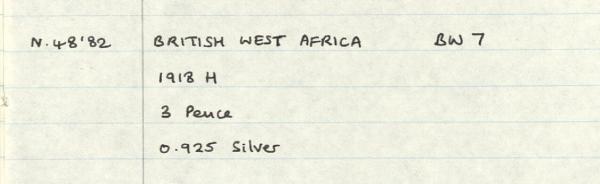 N.48'82 BRITISH WEST AFRICA BW 7
1918 H
3 Pence
0.925 Silver